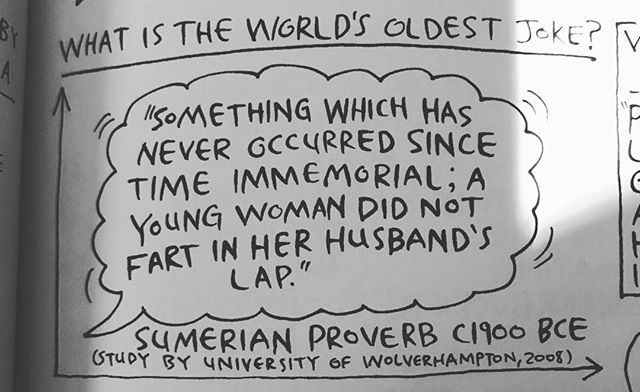 WHAT IS THE WORLD'S OLDEST JOKE?
"SOMETHING WHICH HAS
NEVER OCCURRED SINCE
TIME IMMEMORIAL; A
YOUNG WOMAN DID NOT
FART IN HER HUSBAND'S
LAP."
SUMERIAN PROVERB C1900 BCE
(STUDY BY UNIVERSITY OF WOLVERHAMPTON, 2008)